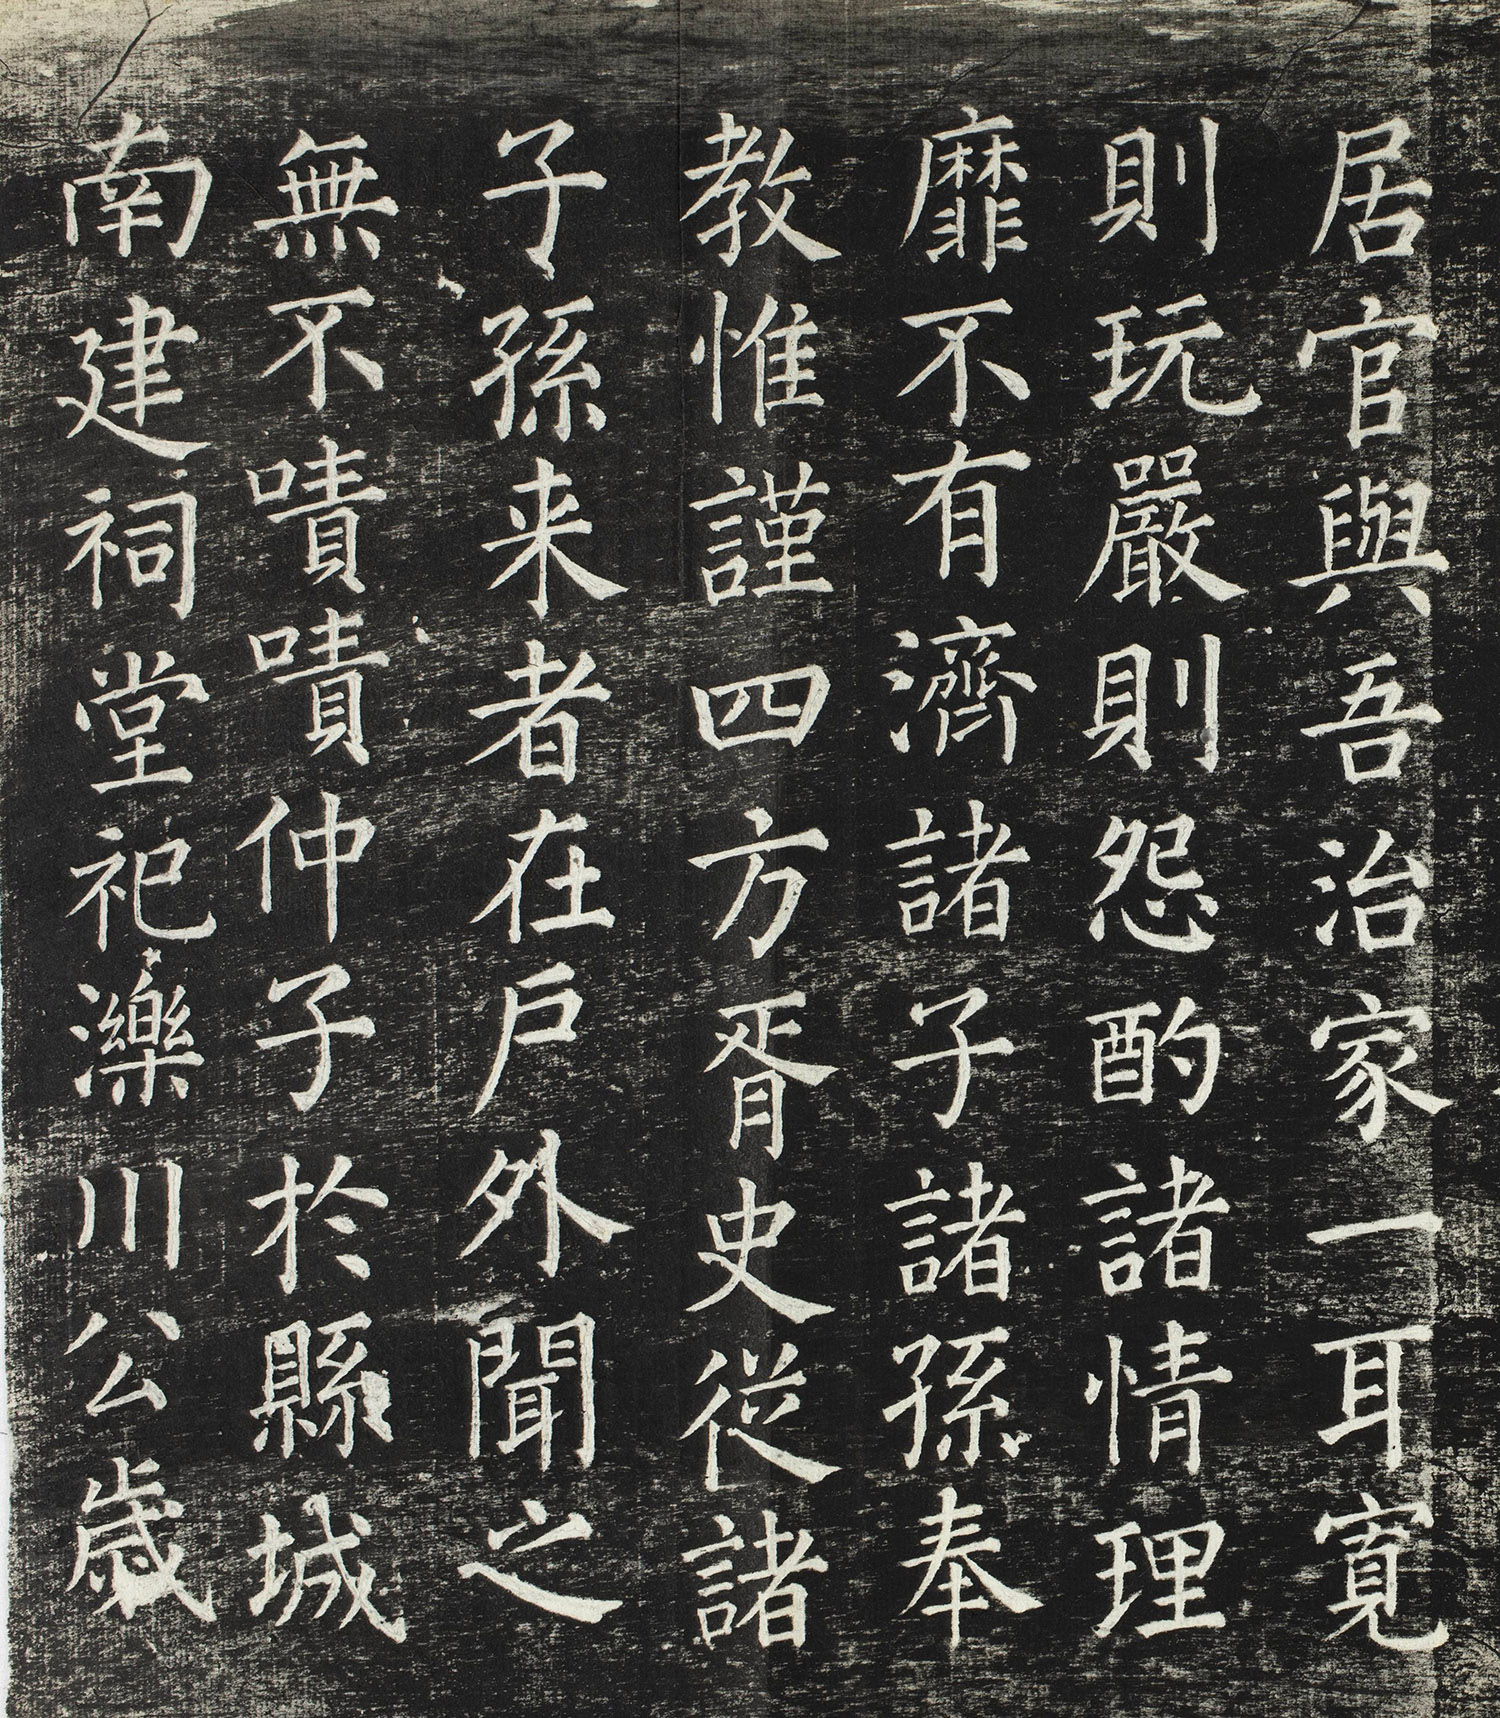 居官與吾治家一耳寬
則玩嚴則怨酌諸情理
靡不有濟諸子諸孫奉
教惟謹四方胥史從諸
子孫来者在戶外聞之
無不嘖嘖仲子於縣城
南建祠堂祀濼川公歲